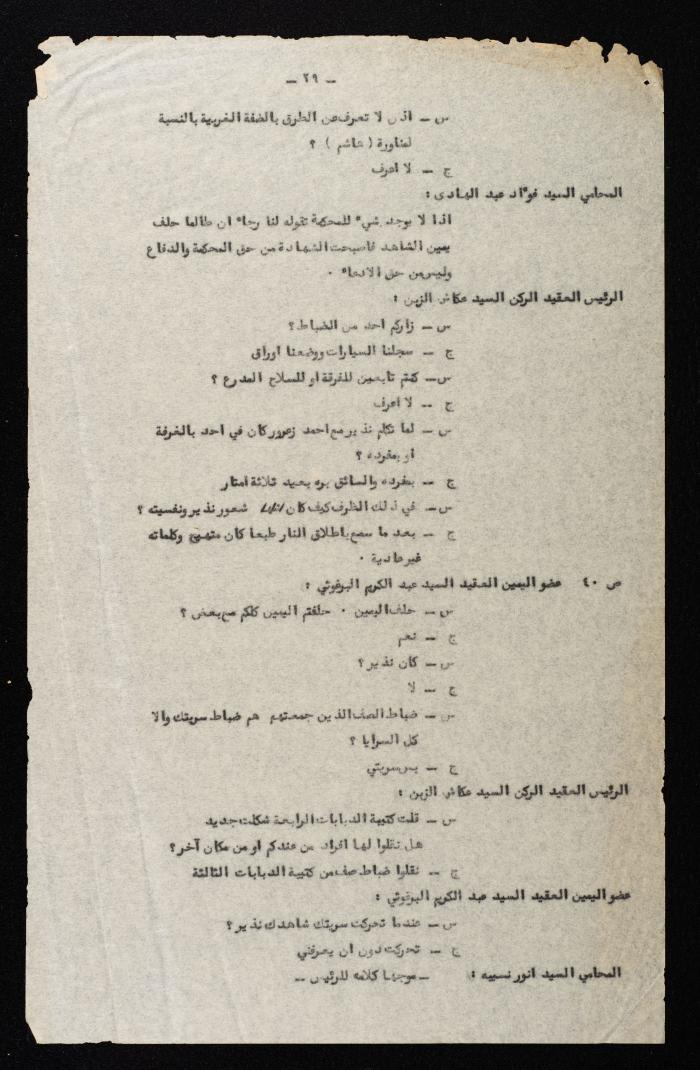 ــ ٢٩ ــ
س ــ اذن لا تعرف عن الطرق بالضفة الغربية بالنسبة
لمناورة ( هاشم ) ؟
ج ــ لا اعرف
المحامي السيد فوءاد عبد الهادى :
اذا لا يوجد شيء للمحكمة تقوله لنا رجاء ان طالما حلف
يمين الشاهد فاصبحت الشهادة من حق المحكمة والدفاع
وليس من حق الادعاء .
الرئيس العقيد الركن السيد عكاش الزبن :
س ــ زاركم احد من الضباط ؟
ج ــ سجلنا السيارات ووضعنا اوراق
س ــ كنتم تابعين للفرقة او للسلاح المدرع ؟
ج ــ لا اعرف
س ــ لما تكلم نذير مع احمد زعرور كان في احد بالغرفة
او بمفرده ؟
ج ــ بمفرده والسائق بره بعيد ثلاثة امتار
س ــ في ذلك الظرف كيف كان شعور نذير ونفسيته ؟
ج ــ بعد ما سمع باطلاق النار طبعا كان متهيج وكلماته
غير عادية .
ص ٤٠ عضو اليمين العقيد السيد عبد الكريم البرغوثي :
س ــ حلف اليمين . حلفتم اليمين كلكم مع بعض ؟
ج ــ نعم
س ــ كان نذير ؟
ج ــ لا
س ــ ضباط الصف الذين جمعتهم هم ضباط سريتك والا
كل السرايا ؟
ج ــ بس سريتي
الرئيس العقيد الركن السيد عكاش الزبن :
س ــ قلت كتيبة الدبابات الرابعة شكلت جديد
هل نقلوا لها افراد من عندكم او من مكان آخر ؟
ج ــ نقلوا ضباط صف من كتيبة الدبابات الثالثة
عضو اليمين العقيد السيد عبد الكريم البرغوثي :
س ــ عندما تحركت سريتك شاهدك نذير ؟
ج ــ تحركت دون ان يعرفني
المحامي السيد انور نسيبه : ــ موجها كلامه للرئيس ــ